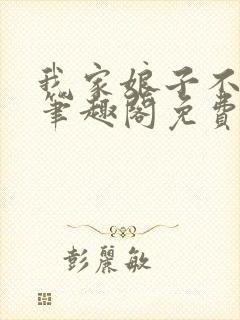 我家娘子不
笔趣阁免费
彭丽敏